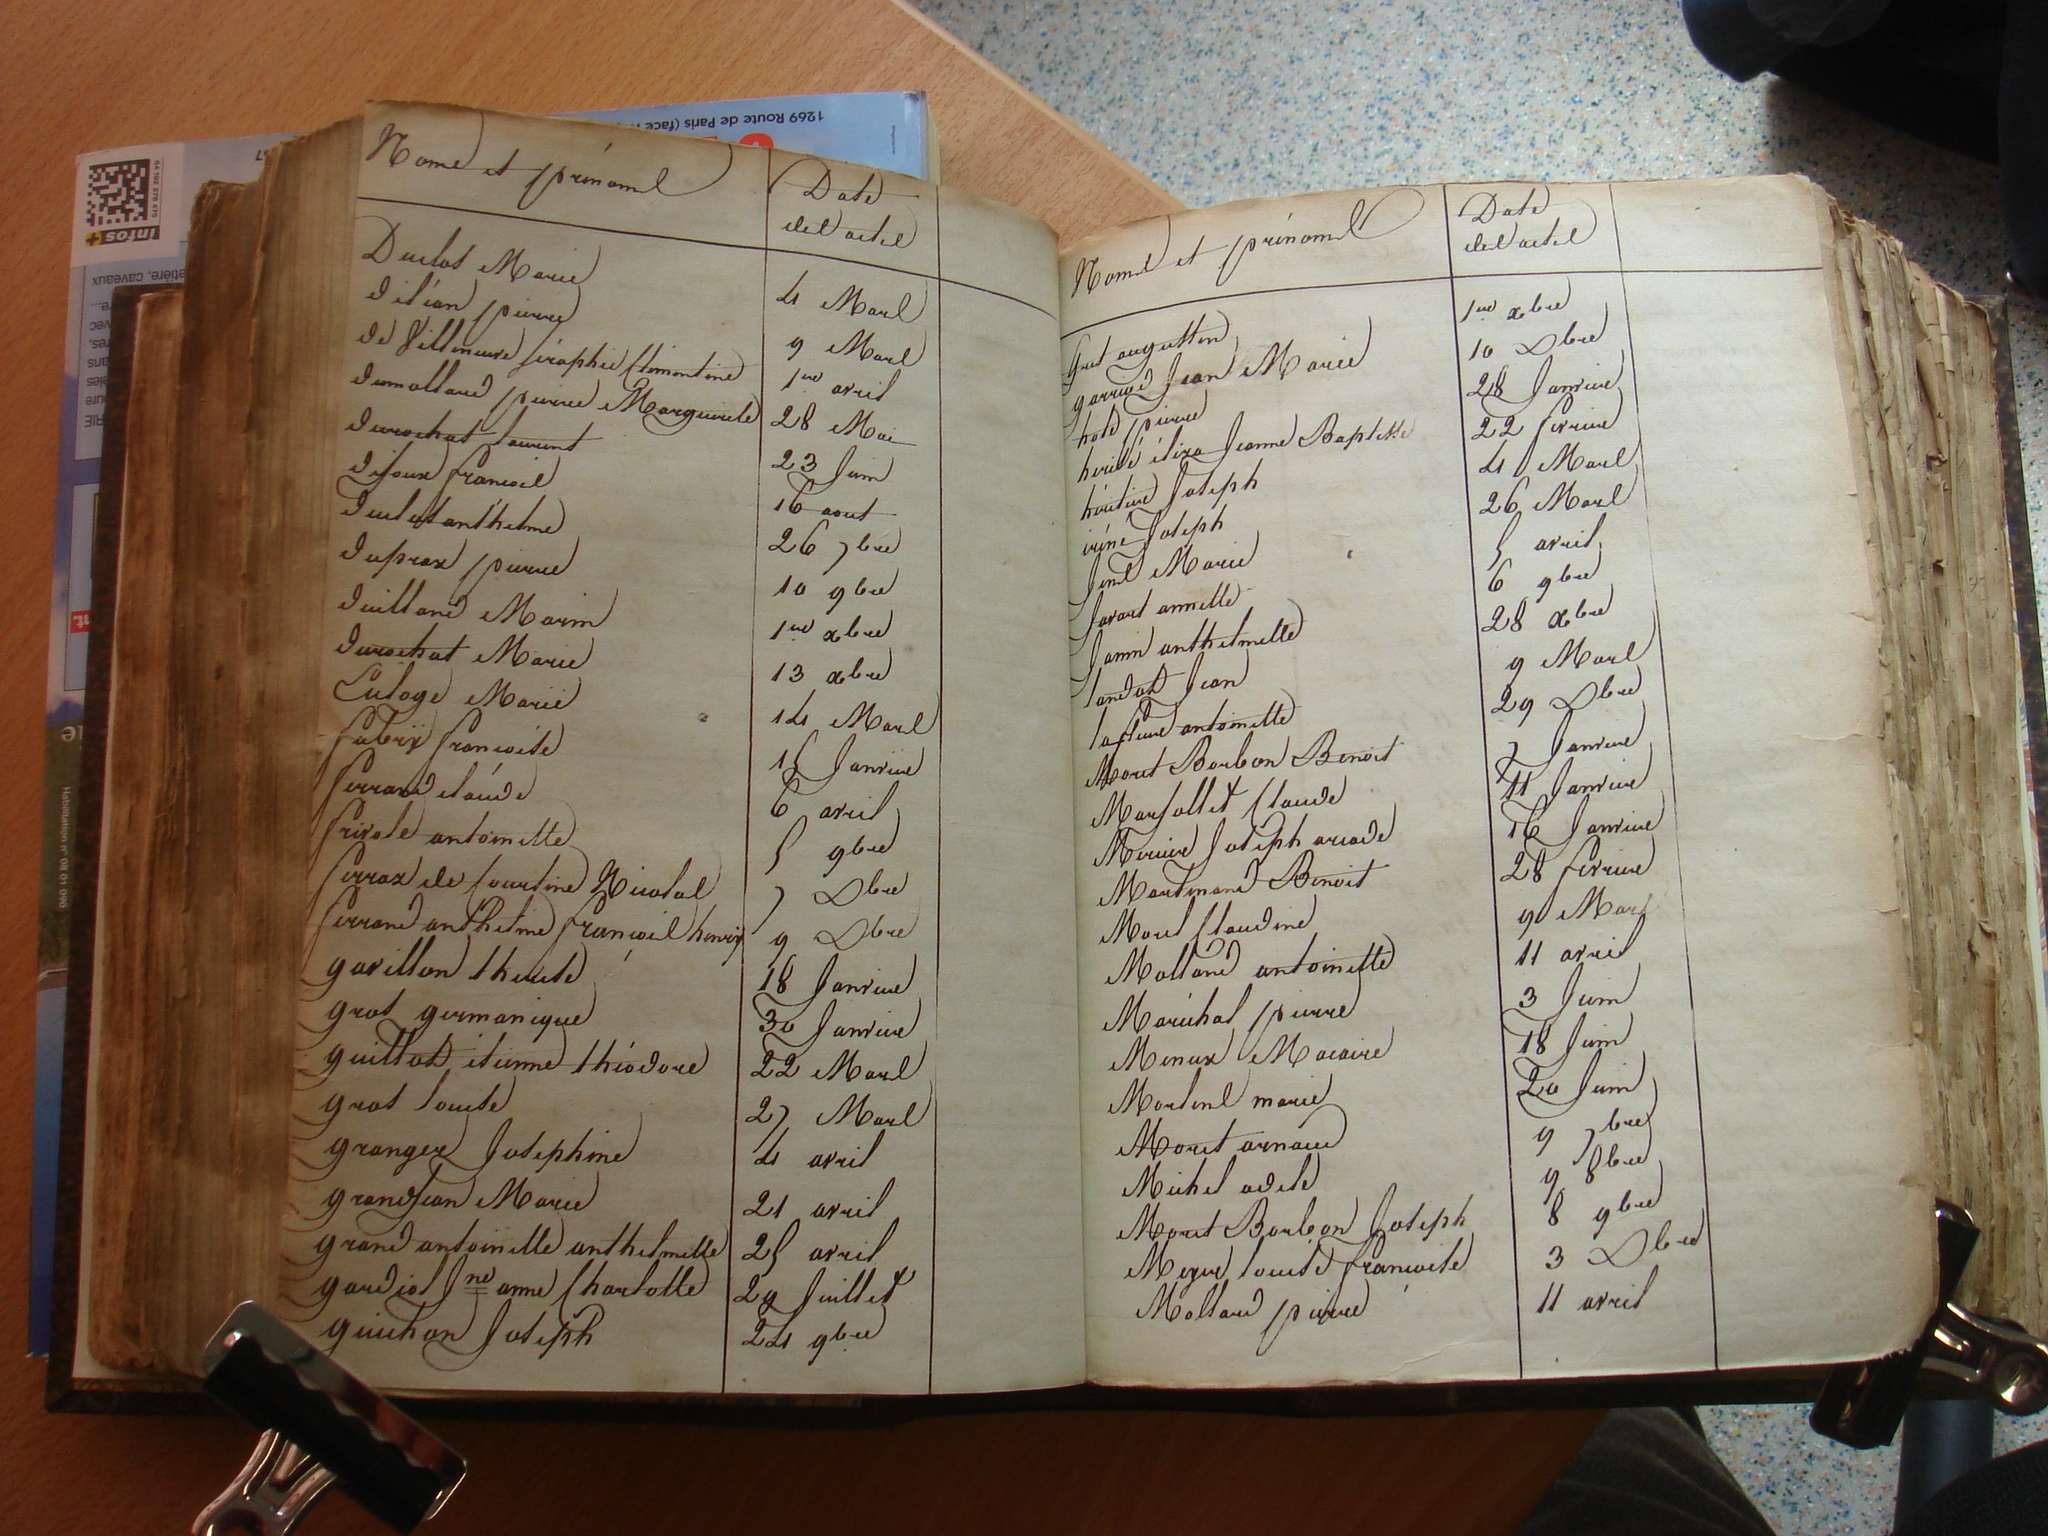 Noms et prénoms Date des actes
Duclos Marie 4 Mars
dijean pierre 9 Mars
de Villeneuve Séraphie Clémentine 1er avril
dumollard pierre Marguerite 28 Mai
durochat laurent 23 Juin
dijoux francois 16 aout
duclos anthelme 26 7bre
dupraz pierre 10 9bre
duilland Marin 1er xbre
durochat Marie 13 xbre
Euloge Marie 14 Mars
fabrix francoise 15 Janvier
ferrand claude 6 avril
frivole antoinette 5 9bre
ferraz de Courtine Nicolas 7 Dbre
ferrand anthelme francois henrix 9 Dbre
gavillon thérèse 18 Janvier
grot germanique 30 Janvier
guillot étienne théodore 22 Mars
grot louise 27 Mars
granger Josephine 4 avril
grandjean Marie 21 avril
grand antoinette anthelmette 25 avril
gardiol Jne anne Charlotte 29 Juillet
guichon Joseph 24 9bre
Noms et prénoms Date des actes
augustin 1er xbre
garriod Jean Marie 10 Dbre
hote pierre 28 Janvier
éliza Jeanne Baptiste 22 février
héritier Joseph 4 Mars
iréné Joseph 26 Mars
Marie 5 avril
Javart annette 6 9bre
Janin anthelmette 28 xbre
landoz Jean 9 Mars
antoinette 29 Dbre
Moret Borbon Benoit 7 Janvier
Marjollet Claude 11 Janvier
Mercier Joseph arcade 16 Janvier
Martinand Benoit 28 février
Morel Claudine 9 Mars
Molland antoinette 11 avril
Maréchal pierre 3 Juin
Menux Macaire 18 Juin
Martinel marie 20 Juin
Moret arnaud 9 7bre
Michel adele 9 8bre
Moret Borbon Joseph 8 9bre
louise francoise 3 Dbre
Mollard pierre 11 avril
1269 Route de Paris (face
infos+